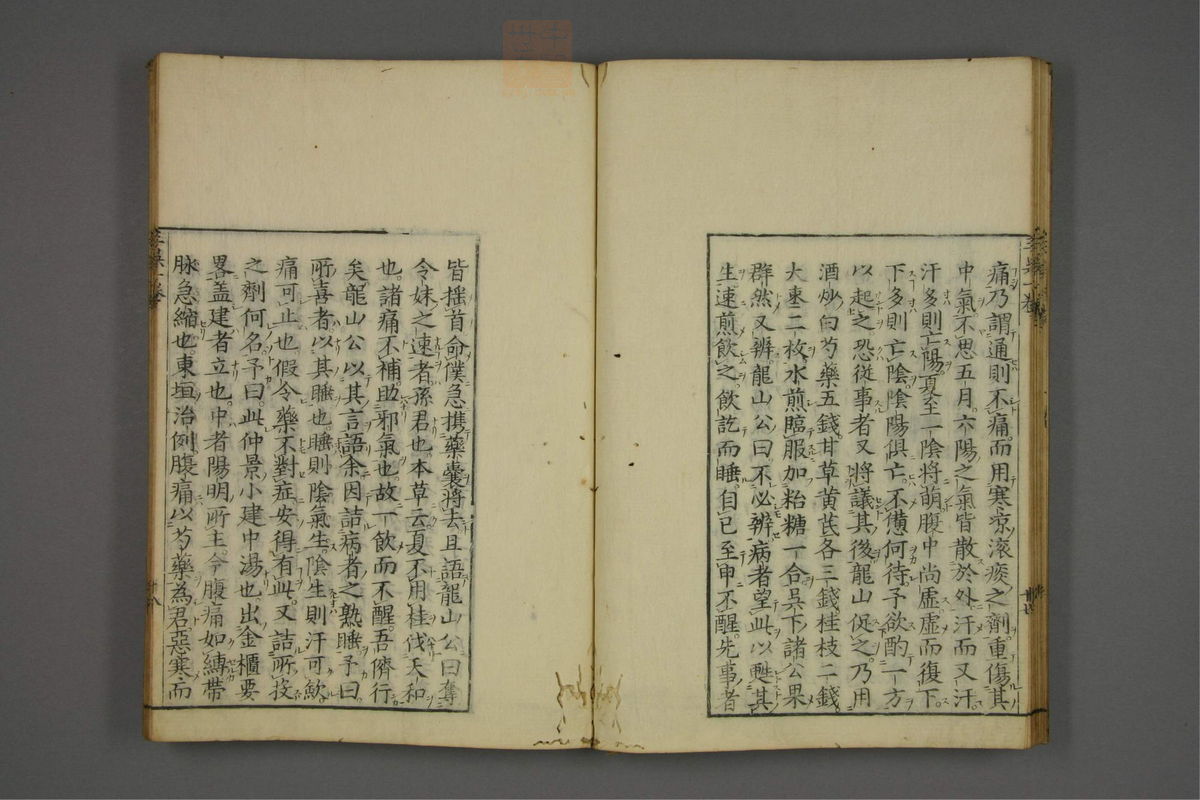 痛乃謂通則不痛而用寒凉滚痰之劑重傷其
中氣不思五月六陽之氣皆散於外汗而又汗
汗多則亡陽夏至一陰將萌腹中尚虛虛而復下
下多則亡陰陰陽俱亡不憊何待予欲酌一方
以起之恐從事者又將議其後龍山促之乃用
酒炒白芍藥五錢甘草黄茋各三錢桂枝二錢
大棗二枚水煎臨服加粘糖一合吳下諸公果
群然又辨龍山公曰不必辨病者望此以甦其
生速煎飲之飲訖而睡自巳至申不醒先事者
皆揺首命僕急携藥囊將去且語龍山公曰奪
令妹之速者孫君也本草云夏不用桂伐天和
也諸痛不補助邪氣也故一飲而不醒吾儕行
矣龍山公以其言語余因詰病者之熟睡予曰
所喜者以其睡也睡則陰氣生陰生則汗可歛
痛可止也假令藥不對症安得有此又詰所投
之劑何名予曰此仲景小建中湯也出金櫃要
畧盖建者立也中者陽明所主今腹痛如縛帶
脉急縮也東垣治例腹痛以芍藥為君惡寒而